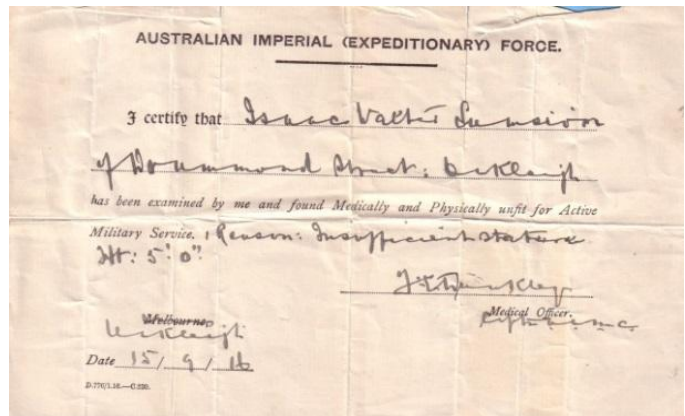 AUSTRALIAN IMPERIAL (EXPEDITIONARY) FORCE.
I certify that Isaac Valtir
of Drummond Street: Oakleigh
has been examined by me and found Medically and Physically unfit for Active
Military Service. Reason: Insufficient stature
Ht: 5' 0"
Medical Officer.
Melbourne,
Oakleigh
Date 15/9/16